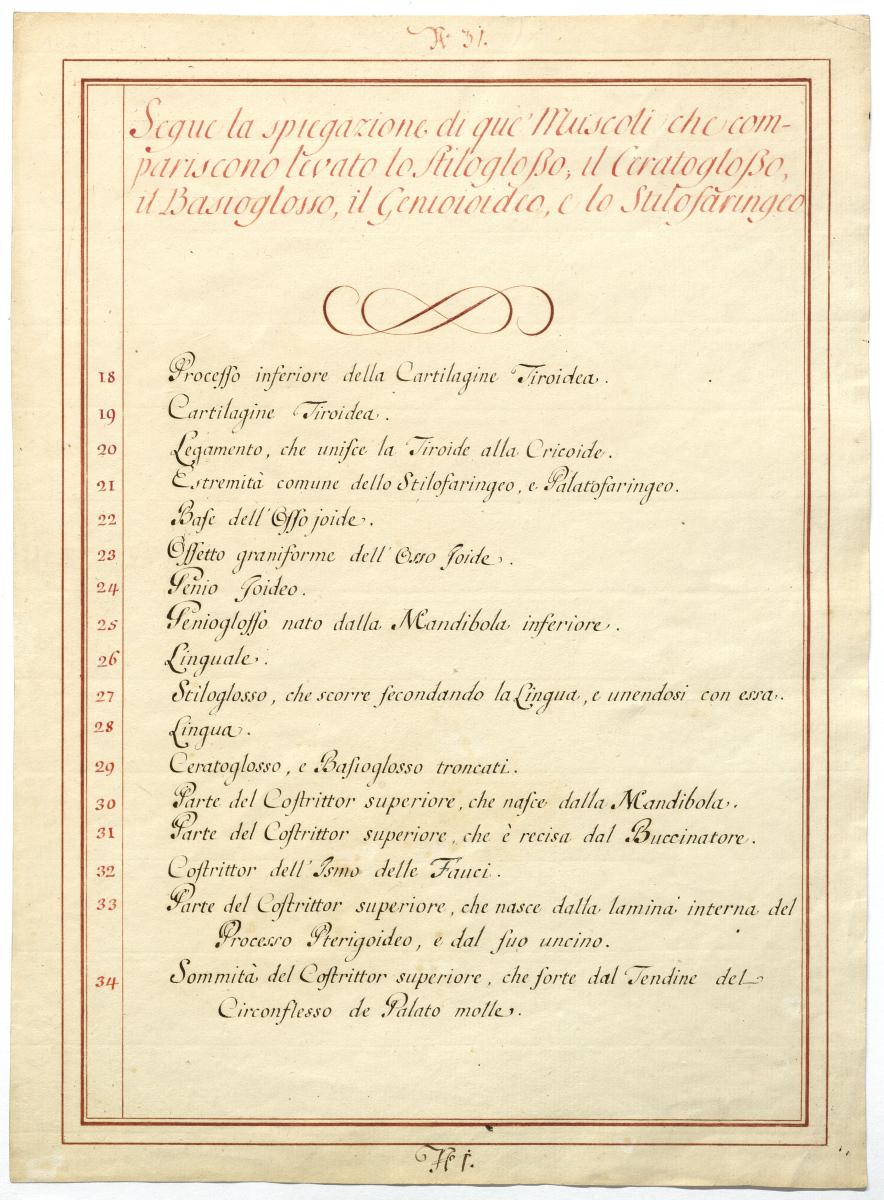 Nº 31.
Segue la spiegazione di que' Muscoli che com-
pariscono levato lo Stilogloßo, il Ceratogloßo,
il Basioglosso, il Genioioideo, e lo Stilofaringeo
18 Proceſſo inferiore della Cartilagine Tiroidea.
19 Cartilagine Tiroidea.
20 Legamento, che uniſce la Tiroide alla Cricoide.
21 Estremità comune dello Stilofaringeo, e Palatofaringeo.
22 Baſe dell'Oſſo joide.
23 Oſſetto graniforme dell'Osso Joide.
24 Genio Joideo.
25 Geniogloſſo nato dalla Mandibola inferiore.
26 Linguale.
27 Stiloglosso, che scorre ſecondando la Lingua, e unendosi con essa.
28 Lingua.
29 Ceratoglosso, e Baſioglosso troncati.
30 Parte del Coſtrittor superiore, che naſce dalla Mandibola.
31 Parte del Coſtrittor superiore, che è recisa dal Buccinatore.
32 Coſtrittor dell'Ismo delle Fauci.
33 Parte del Coſtrittor superiore, che nasce dalla lamina interna del
Processo Pterigoideo, e dal ſuo uncino.
34 Sommità del Coſtrittor superiore, che ſorte dal Tendine del
Circonflesso de Palato molle.